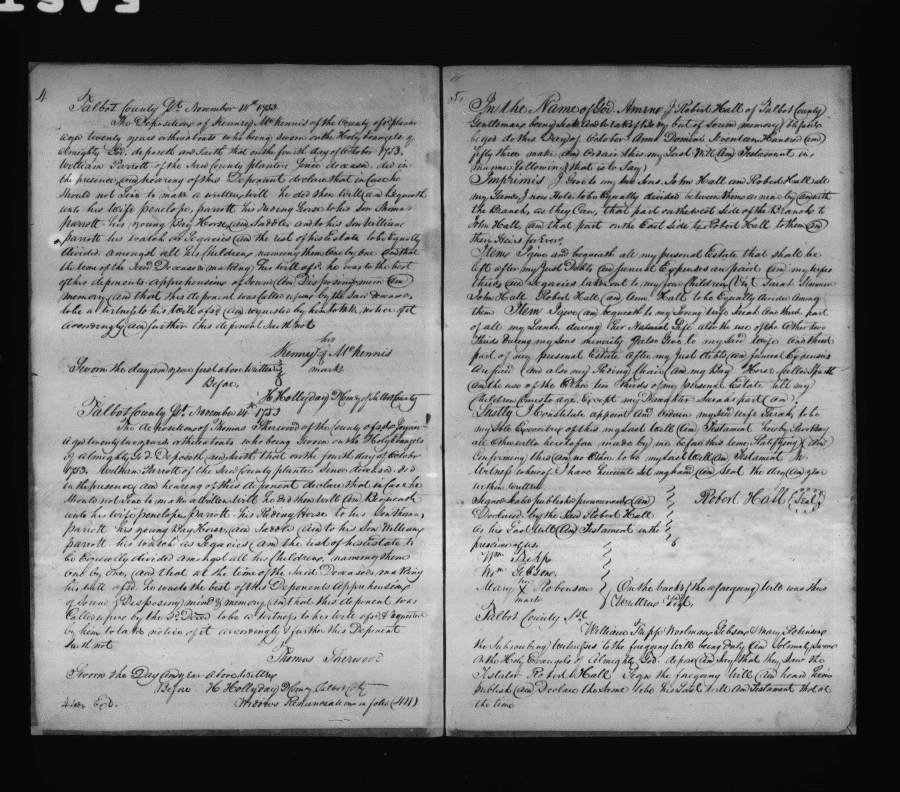 4
Talbot County Sc. November 14th 1753
The Depositions of Kenney McKennis of the County afsd planter
aged twenty years or thereabouts who being sworn on the Holy Evangels of
Almighty God, deposeth and Saith that on the fourth day of October 1753.
William Parrott of the Said County planter Since deceased did in
the presence and hearing of this Deponant declare that in Case he
should not Live to make a written will he did then will and Bequeath
unto his wife penelope parrott his Riding Horse to his Son Thomas
parrott his young Bay Horse and Saddle and to his Son William
parrott his watch as Legacies and the rest of his Estate to be Equally
divided amongst all his Children naming them one by one and that
the time of the Said Deceased making this will afsd. he was to the best
of this deponents apprehensions of Sound and Disposing mind and
memory and that this deponent was Called upon by the Said Deceased
to be a witness to his Will afsd and requested by him to take notice of it
accordingly and further this deponent Saith not
his
Kenney McKennis
mark
Sworn the day and year first above written
Before
H Hollyday Dep Comry of Talbot County
Talbot County Sc. November 14th 1753
The depositions of Thomas Sherwood of the County afsd Joyner
Aged twenty two years or thereabouts who being Sworn on the Holy Evangels
of almighty God Deposeth and saith that on the fourth day of October
1753. William Parrott of the Said County planter Since deceased did
in the presence and hearing of this deponent declare that in Case he
Should not Live to make a written will he did then will and Bequeath
unto his wife penelope parrott his Riding Horse to his Son Thomas
parrott his young Bay Horse and Saddle and to his Son William
parrott his watch as Legacies and the rest of his Estate to
be Equally divided amongst all his Children, naming them
one by one, and that at the time of the Said Deceased making
his will afsd. he was to the best of this Deponents apprehensions
of Sound & Disposing mind & memory and that this deponent was
Called upon by the Sd. Decd to be a witness to his will afsd & requested
by him to take notice of it accordingly & further this Deponent
Saith not
Thomas Sherwood
Sworn the Day and year above written
Before H Hollyday Dep Comry Talbot Cty
Widows Renunciation in folio (411)
5
In the Name of God Amen I Robert Hall of Talbot County
Gentleman being sick and weak of Body but of Sound memory
God do this Day of October Anno Domini Seventeen Hundred and
fifty three make and Ordain this my Last Will and Testament in
manner following that is to Say
Imprimis I Give to my two Sons John Hall and Robert Hall all
my Lands I now Hold to be Equally divided between them as near
the Branch, as they Can, that part on the West Side of the Branch to
John Hall and that part on the East Side to Robert Hall to them and
their Heirs for Ever
Item I give and bequeath all my personal Estate that shall be
left after my Just Debts and funeral Expenses are paid and my wifes
thirds and Legacies taken out to my four Children Viz Sarah
John Hall Robert Hall and Ann Hall to be Equally divided Among
them Item I give and bequeath to my Loving wife Sarah One third part
of all my Lands during her Natural Life also the use of the Other two
thirds during my Sons minority I also Give to my said wife One third
part of my personal Estate after my Just debts and funeral Expenses
are paid and also my Riding Chair and my Bay Horse Called
and the use of the Other two thirds of my personal Estate till my
Children Comes to age Except my Daughter Sarahs part and
Lastly I Constitute appoint and Ordain my Said wife Sarah to be
my Sole Executrix of this my Last Will and Testament hereby Revoking
all Other wills heretofore made by me before this time Ratifying and
Confirming this and no Other to be my Last Will and Testament In
Witness whereof I have hereunto Set my hand and Seal the day and year
within written
Signed Sealed published pronounced and
Robert Hall (Seal)
Declared by the Said Robert Hall
as his Last Will and Testament in the
presence of us
Wm Tripp
Wm Gibson
her
Mary X Robinson
mark
On the back of the aforegoing will was thus
Written Vizt.
Talbot County Sct
William Tripp Woolman Gibson & Mary Robinson
the Subscribing Witnesses to the foregoing Will being duly and Solemnly Sworn
on the Holy Evangels of Almighty God. depose and Say that they Saw the
Testator Robert Hall Sign the foregoing Will and heard him
publish and Declare the Same to be his Last Will and Testament that at
the time